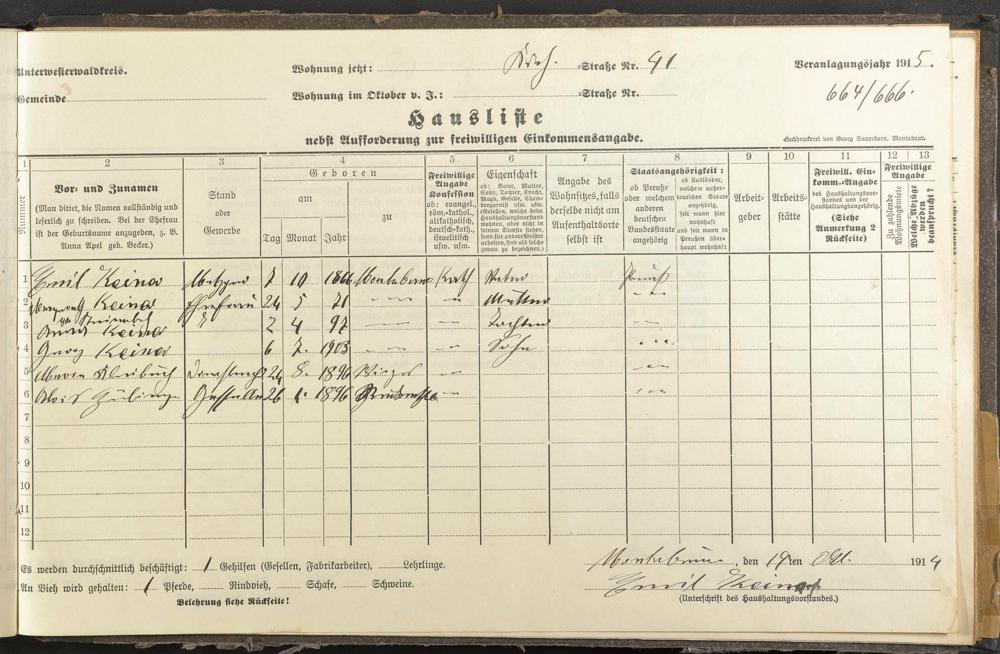 Unterwesterwaldkreis.
Wohnung jetzt: Kirch. =Straße Nr. 41
Veranlagungsjahr 1915.
Gemeinde
Wohnung im Oktober v. J.: =Straße Nr.
664/666.
Hausliste
nebst Aufforderung zur freiwilligen Einkommensangabe.
Buchdruckerei von Georg Sauerborn, Montabaur.
1 2 3 4 5 6 7 8 9 10 11 12 13
Nummer
Vor- und Zunamen
(Man bittet, die Namen vollständig und
leserlich zu schreiben. Bei der Ehefrau
ist der Geburtsname anzugeben, z. B.
Anna Apel geb. Becker.)
Stand
oder
Gewerbe
Geboren
am
Tag Monat Jahr
zu
Freiwillige
Angabe
Konfession
ob: evangel.,
röm.-kathol.,
altkatholisch,
deutsch-kath.,
israelitisch
usw. usw.
Eigenschaft
ob: Vater, Mutter,
Sohn, Tochter, Knecht,
Magd, Geselle, Cham-
bregarnist usw. usw.
(Gesellen, welche beim
Haushaltungsvorstand
wohnen, aber nicht in
seinem Dienste stehen,
sond. für andere Meister
arbeiten, sind als solche
genau zu bezeichnen.)
Angabe des
Wohnsitzes, falls
derselbe nicht am
Aufenthaltsorte
selbst ist
Staatsangehörigkeit:
ob Preuße
oder welchem
anderen
deutschen
Bundesstaate
angehörig
ob Ausländer,
welchem außer-
deutschen Staate
angehörig,
seit wann hier
wohnhaft
und seit wann in
Preußen über-
haupt wohnhaft
Arbeit-
geber
Arbeits-
stätte
Freiwill. Ein-
komm.-Angabe
des Haushaltungsvor-
standes und der
Haushaltungsangehörig.
(Siehe
Anmerkung 2
Rückseite)
Freiwillige
Angabe
Zu zahlende
Wohnungsmiete
Welche Abzüge
werden
beansprucht?
1 Emil Keiner Metzger 7 10 1866 Montabaur Kath Vater Preuß
2 Keiner Ehefrau 24 5 71 — — Mutter —
3 Anna Keiner 2 4 97 — — Tochter —
4 Georg Keiner 6 7. 1903 — — Sohn —
5 24 8. 1896 Wirges — —
6 Alois 26 1896 — —
7
8
9
10
11
12
Es werden durchschnittlich beschäftigt: 1 Gehilfen (Gesellen, Fabrikarbeiter), Lehrlinge.
Montabaur, den 19ten Okt. 1914
An Vieh wird gehalten: 1 Pferde, Rindvieh, Schafe, Schweine.
Emil Keiner
Belehrung siehe Rückseite!
(Unterschrift des Haushaltungsvorstandes.)